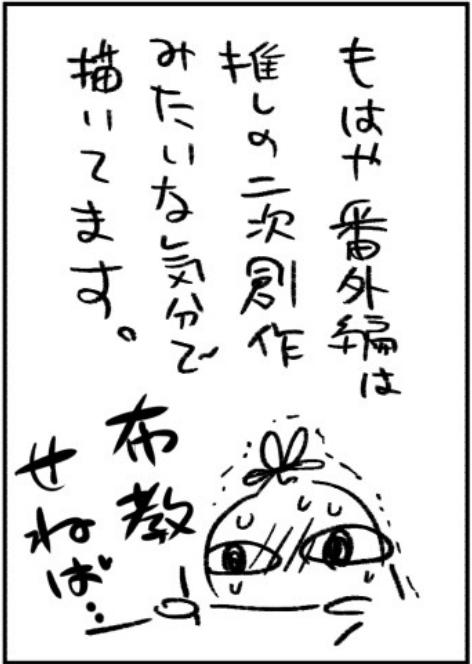 もはや番外編は
推しの二次創作
みたいな気分で
描いてます。
布教
せねば…